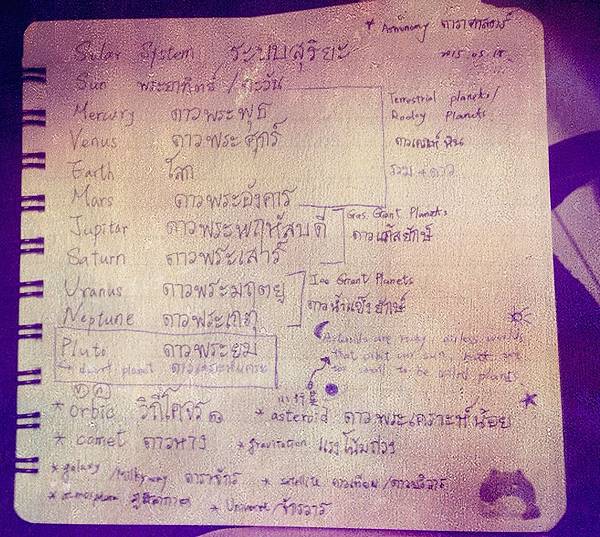 * Astronomy ดาราศาสตร์
Solar System ระบบสุริยะ
2015.05.18
Sun พระอาทิตย์ / ตะวัน
Mercury ดาวพระพุธ
Venus ดาวพระศุกร์
Earth โลก
Mars ดาวพระอังคาร
Terrestrial planets/
Rocky Planets
ดาวเคราะห์ หิน
รวม 4 ดาว
Jupitar ดาวพระพฤหัสบดี
Saturn ดาวพระเสาร์
Gas Giant Planets
ดาวแก๊สยักษ์
Uranus ดาวพระมฤตยู
Neptune ดาวพระเกตุ
Ice Giant Planets
ดาวน้ำแข็งยักษ์
Pluto ดาวพระยม
dwarf planet ดาวเคราะห์แคระ
Asteroids are rocky, airless worlds
that orbit our sun, but are
too small to be called planets
* orbic วิถีโคจร
* asteroid ดาวพระเคราะห์น้อย
* comet ดาวหาง
* gravitation แรงโน้มถ่วง
* galaxy /Milkyway ดาราจักร
* satellite ดาวเทียม /ดาวบริวาร
* Universe /จักรวาร